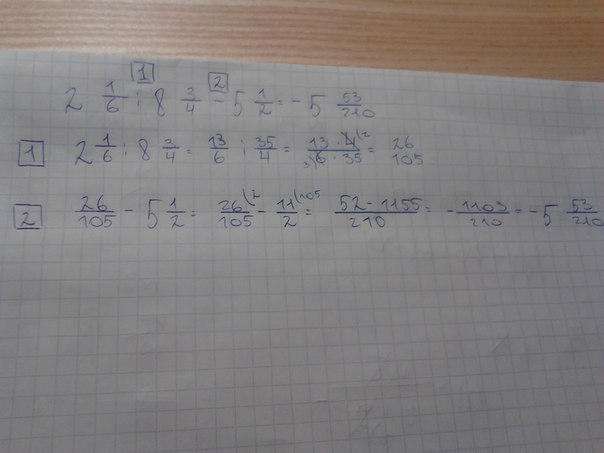 1 2
2 1/6 : 8 3/4 - 5 1/2 = - 5 53/210
1 2 1/6 : 8 3/4 = 13/6 : 35/4 = 13 · 4 \2 / 3\ 6 · 35 = 26/105
2 26/105 - 5 1/2 = 26\2/105 - 11\105/2 = 52 - 1155/210 = - 1103/210 = - 5 53/210